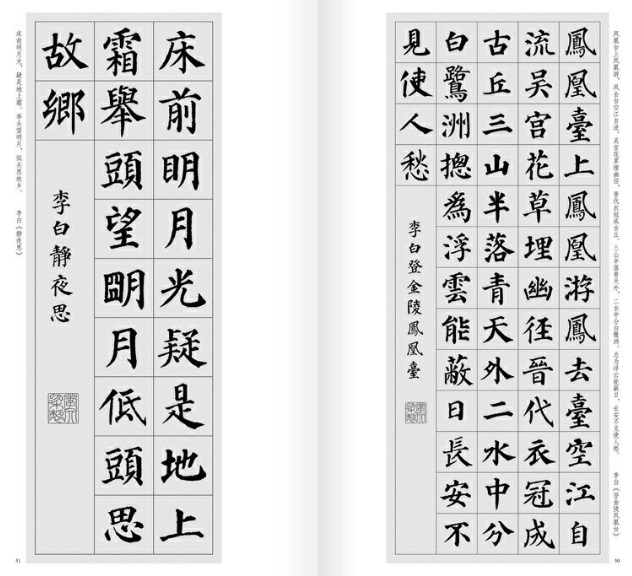 凤凰台上凤凰游，凤去台空江自流。吴宫花草埋幽径，晋代衣冠成古丘。三山半落青天外，二水中分白鹭洲。总为浮云能蔽日，长安不见使人愁。 李白《登金陵凤凰台》
鳳凰臺上鳳凰游鳳去臺空江自
流吴宫花草埋幽径晉代衣冠成
古丘三山半落青天外二水中分
白鷺洲摠為浮雲能蔽日長安不
見使人愁
李白登金陵鳳凰臺
50
床前眀月光疑是地上
霜舉頭望朙月低頭思
故鄉
李白靜夜思
床前明月光，疑是地上霜。举头望明月，低头思故乡。 李白《静夜思》
51